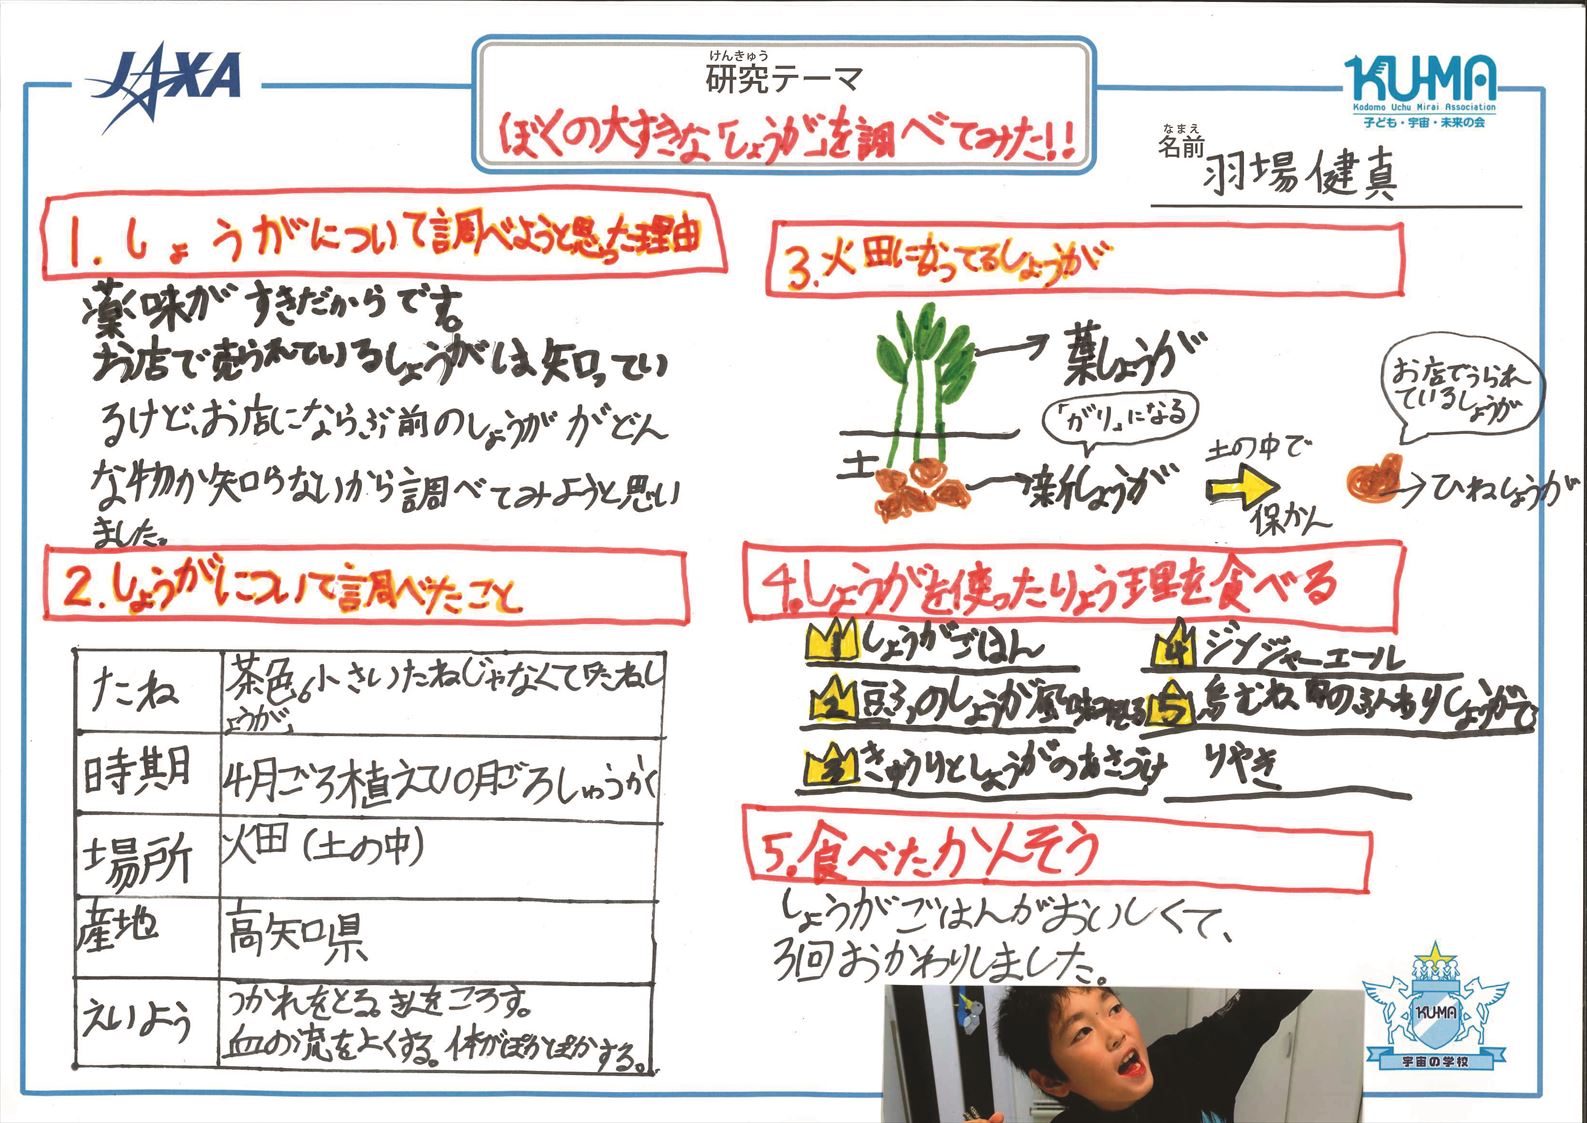 JAXA
けんきゅう
研究テーマ
ぼくの大すきな「しょうが」を調べてみた!!
KUMA
Kodomo Uchu Mirai Association
子ども・宇宙・未来の会
なまえ
名前
羽場健真
1.しょうがについて調べようと思った理由
薬味がすきだからです。
お店で売られているしょうがは知ってい
るけど、お店にならぶ前のしょうががどん
な物か知らないから調べてみようと思い
ました。
2.しょうがについて調べたこと
たね
茶色。小さいたねじゃなくて「たねし
ょうが」
時期
4月ごろ植えて10月ごろしゅうかく
場所
畑(土の中)
産地
高知県
えいよう
つかれをとる。きんをころす。
血の流をよくする。体がぽかぽかする。
3.畑になってるしょうが
葉しょうが
「がり」になる
土
新しょうが
土の中で
保かん
お店でうられ
ているしょうが
ひねしょうが
4.しょうがを使ったりょう理を食べる
1 しょうがごはん
2 豆ふのしょうが風味
3 きゅうりとしょうがのあさづけ
4 ジンジャーエール
5 鳥むね肉のふんわりしょうがて
りやき
5.食べたかんそう
しょうがごはんがおいしくて、
3回おかわりしました。
KUMA
宇宙の学校